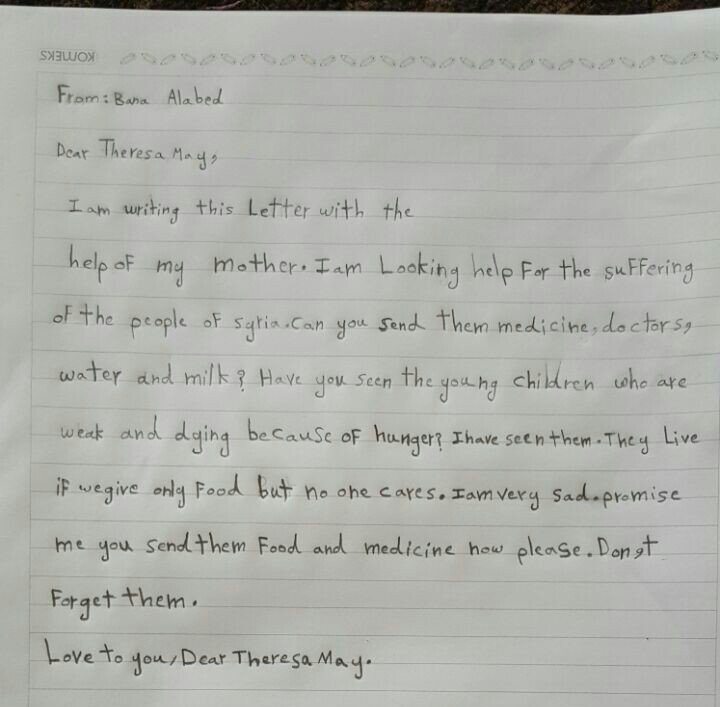 KOMEKS
From: Bana Alabed
Dear Theresa May,
I am writing this Letter with the
help of my mother. I am Looking help For the suffering
of the people of syria. Can you send them medicine, doctors,
water and milk? Have you seen the young children who are
weak and dying because of hunger? I have seen them. They Live
if we give only Food but no one cares. I am very sad. promise
me you send them Food and medicine now please. Don,t
Forget them.
Love to you, Dear Theresa May.